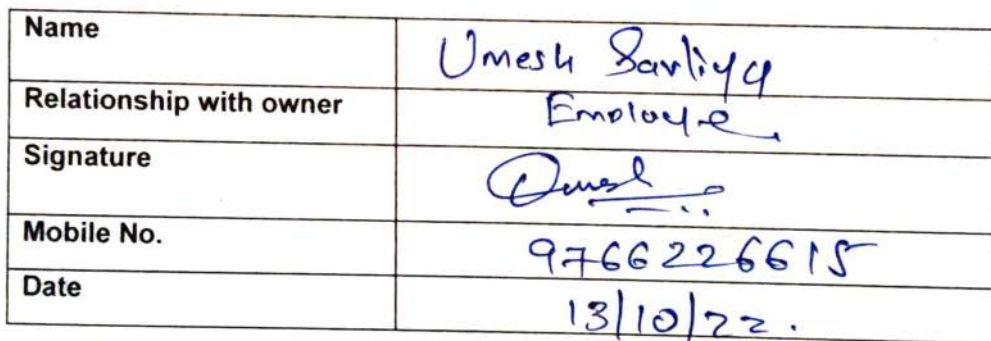 Name Umesh Savliya
Relationship with owner Employe
Signature Umesh
Mobile No. 9766226615
Date 13/10/22.